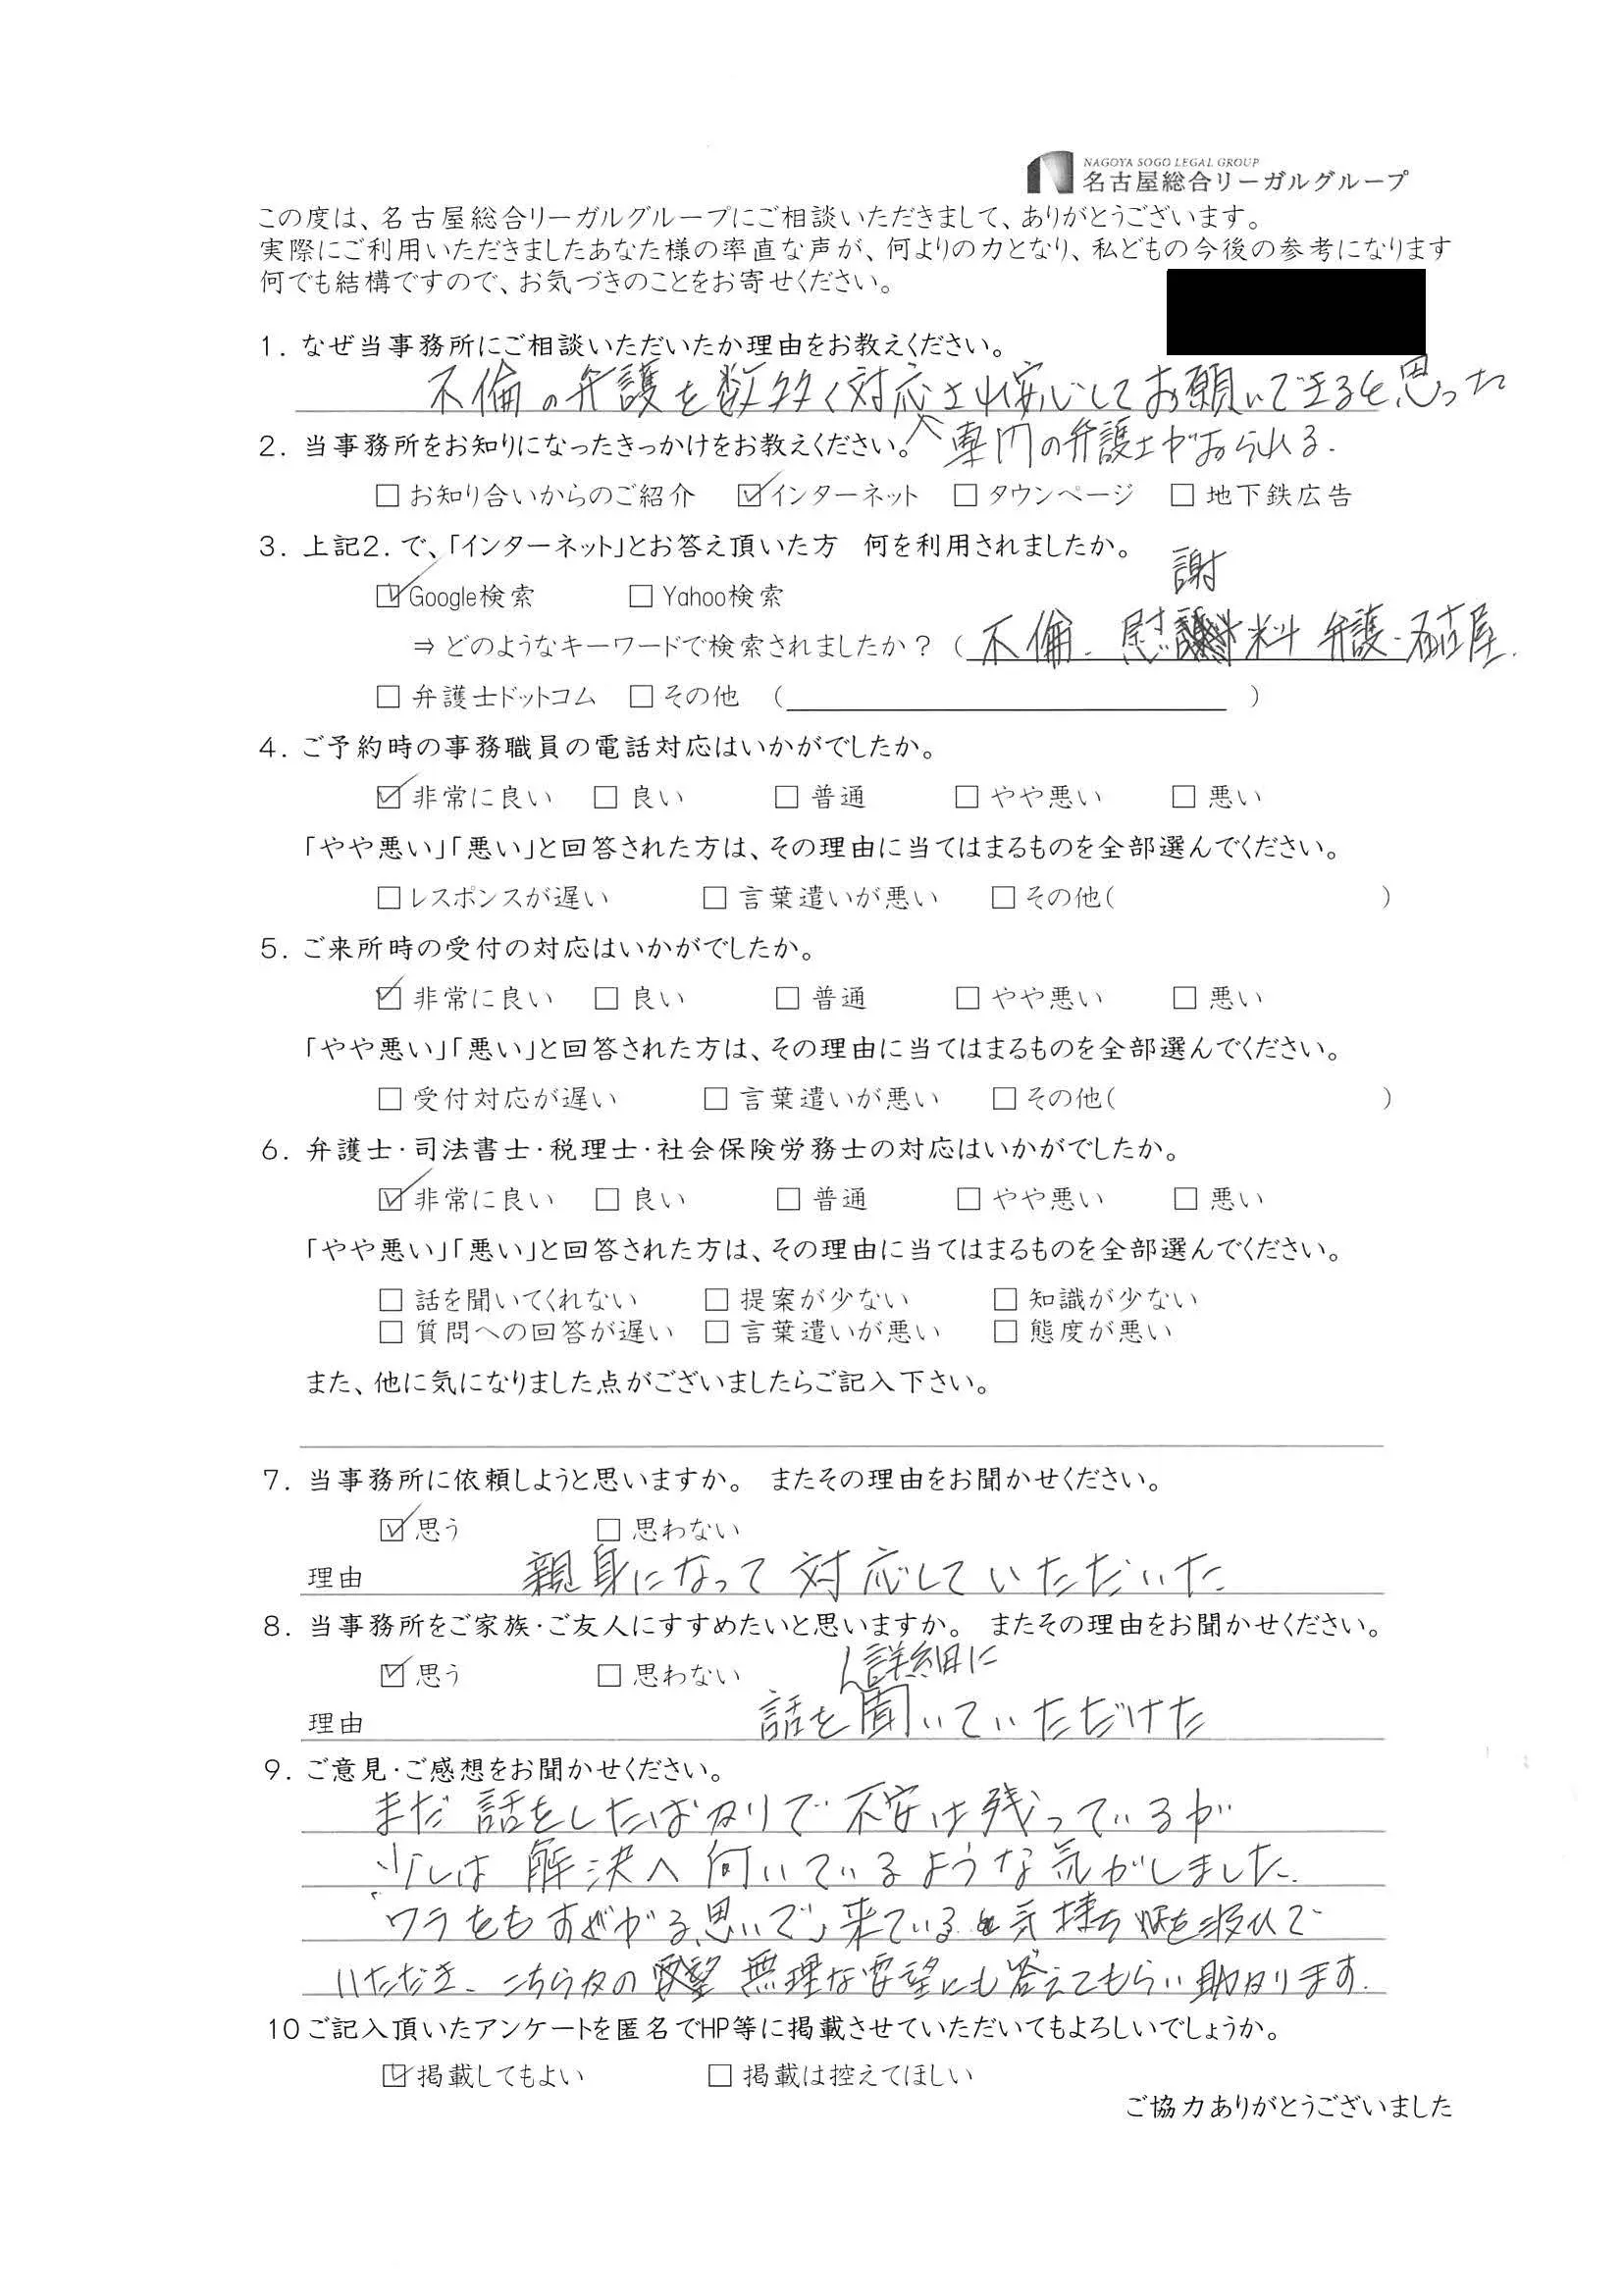 NAGOYA SOGO LEGAL GROUP
名古屋総合リーガルグループ
この度は、名古屋総合リーガルグループにご相談いただきまして、ありがとうございます。
実際にご利用いただきましたあなた様の率直な声が、何よりの力となり、私どもの今後の参考になります
何でも結構ですので、お気づきのことをお寄せください。
1. なぜ当事務所にご相談いただいたか理由をお教えください。
不倫の弁護を数多く対応され安心してお願いできると思った
2. 当事務所をお知りになったきっかけをお教えください。 専門の弁護士がおられる.
□ お知り合いからのご紹介 ☑ インターネット □ タウンページ □ 地下鉄広告
3. 上記2. で、「インターネット」とお答え頂いた方 何を利用されましたか。
謝
☑ Google検索 □ Yahoo検索
⇒ どのようなキーワードで検索されましたか? ( 不倫. 慰 料 弁護. 名古屋.
□ 弁護士ドットコム □ その他 ( )
4. ご予約時の事務職員の電話対応はいかがでしたか。
☑ 非常に良い □ 良い □ 普通 □ やや悪い □ 悪い
「やや悪い」「悪い」と回答された方は、その理由に当てはまるものを全部選んでください。
□ レスポンスが遅い □ 言葉遣いが悪い □ その他( )
5. ご来所時の受付の対応はいかがでしたか。
☑ 非常に良い □ 良い □ 普通 □ やや悪い □ 悪い
「やや悪い」「悪い」と回答された方は、その理由に当てはまるものを全部選んでください。
□ 受付対応が遅い □ 言葉遣いが悪い □ その他( )
6. 弁護士・司法書士・税理士・社会保険労務士の対応はいかがでしたか。
☑ 非常に良い □ 良い □ 普通 □ やや悪い □ 悪い
「やや悪い」「悪い」と回答された方は、その理由に当てはまるものを全部選んでください。
□ 話を聞いてくれない □ 提案が少ない □ 知識が少ない
□ 質問への回答が遅い □ 言葉遣いが悪い □ 態度が悪い
また、他に気になりました点がございましたらご記入下さい。
7. 当事務所に依頼しようと思いますか。 またその理由をお聞かせください。
☑ 思う □ 思わない
理由 親身になって対応していただいた.
8. 当事務所をご家族・ご友人にすすめたいと思いますか。 またその理由をお聞かせください。
☑ 思う □ 思わない 詳細に
理由 話を聞いていただけた
9. ご意見・ご感想をお聞かせください。
まだ話をしたばかりで不安は残っているが
少しは解決へ向いているような気がしました.
「ワラをもすがる思いで」来ている 気持ち を汲んで
いただき、こちら方の 無理な要望にも答えてもらい助かります.
10 ご記入頂いたアンケートを匿名でHP等に掲載させていただいてもよろしいでしょうか。
☑ 掲載してもよい □ 掲載は控えてほしい
ご協力ありがとうございました